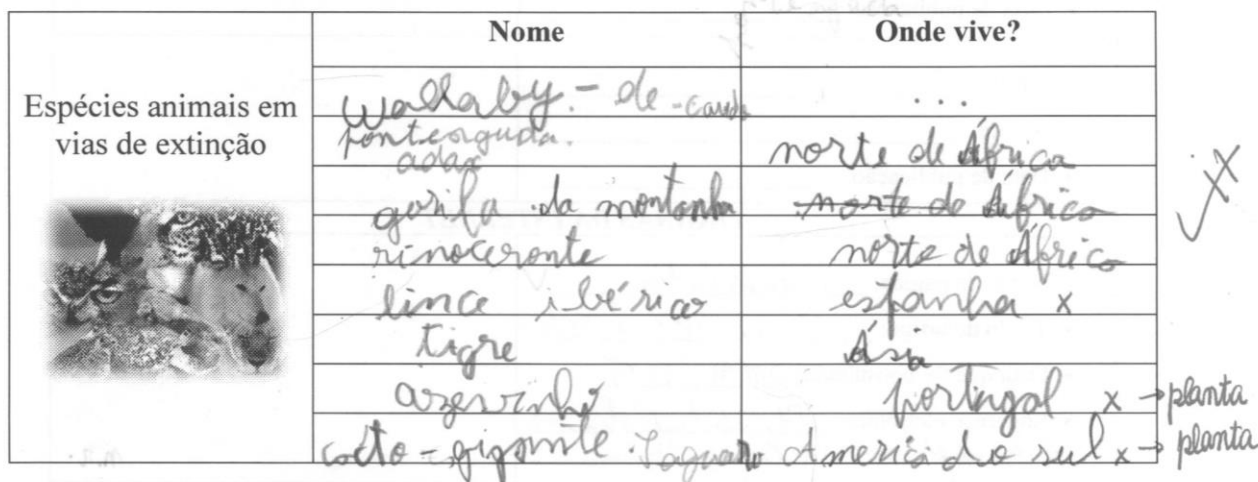 Nome Onde vive?
Espécies animais em
vias de extinção
wallaby - de - cauda ...
pontiaguda.
adax norte de África
gorila da montanha norte de África
rinoceronte norte de África
lince ibérico espanha x
tigre Ásia
azevinho portugal x → planta
cacto - gigante Saguaro America do sul x → planta